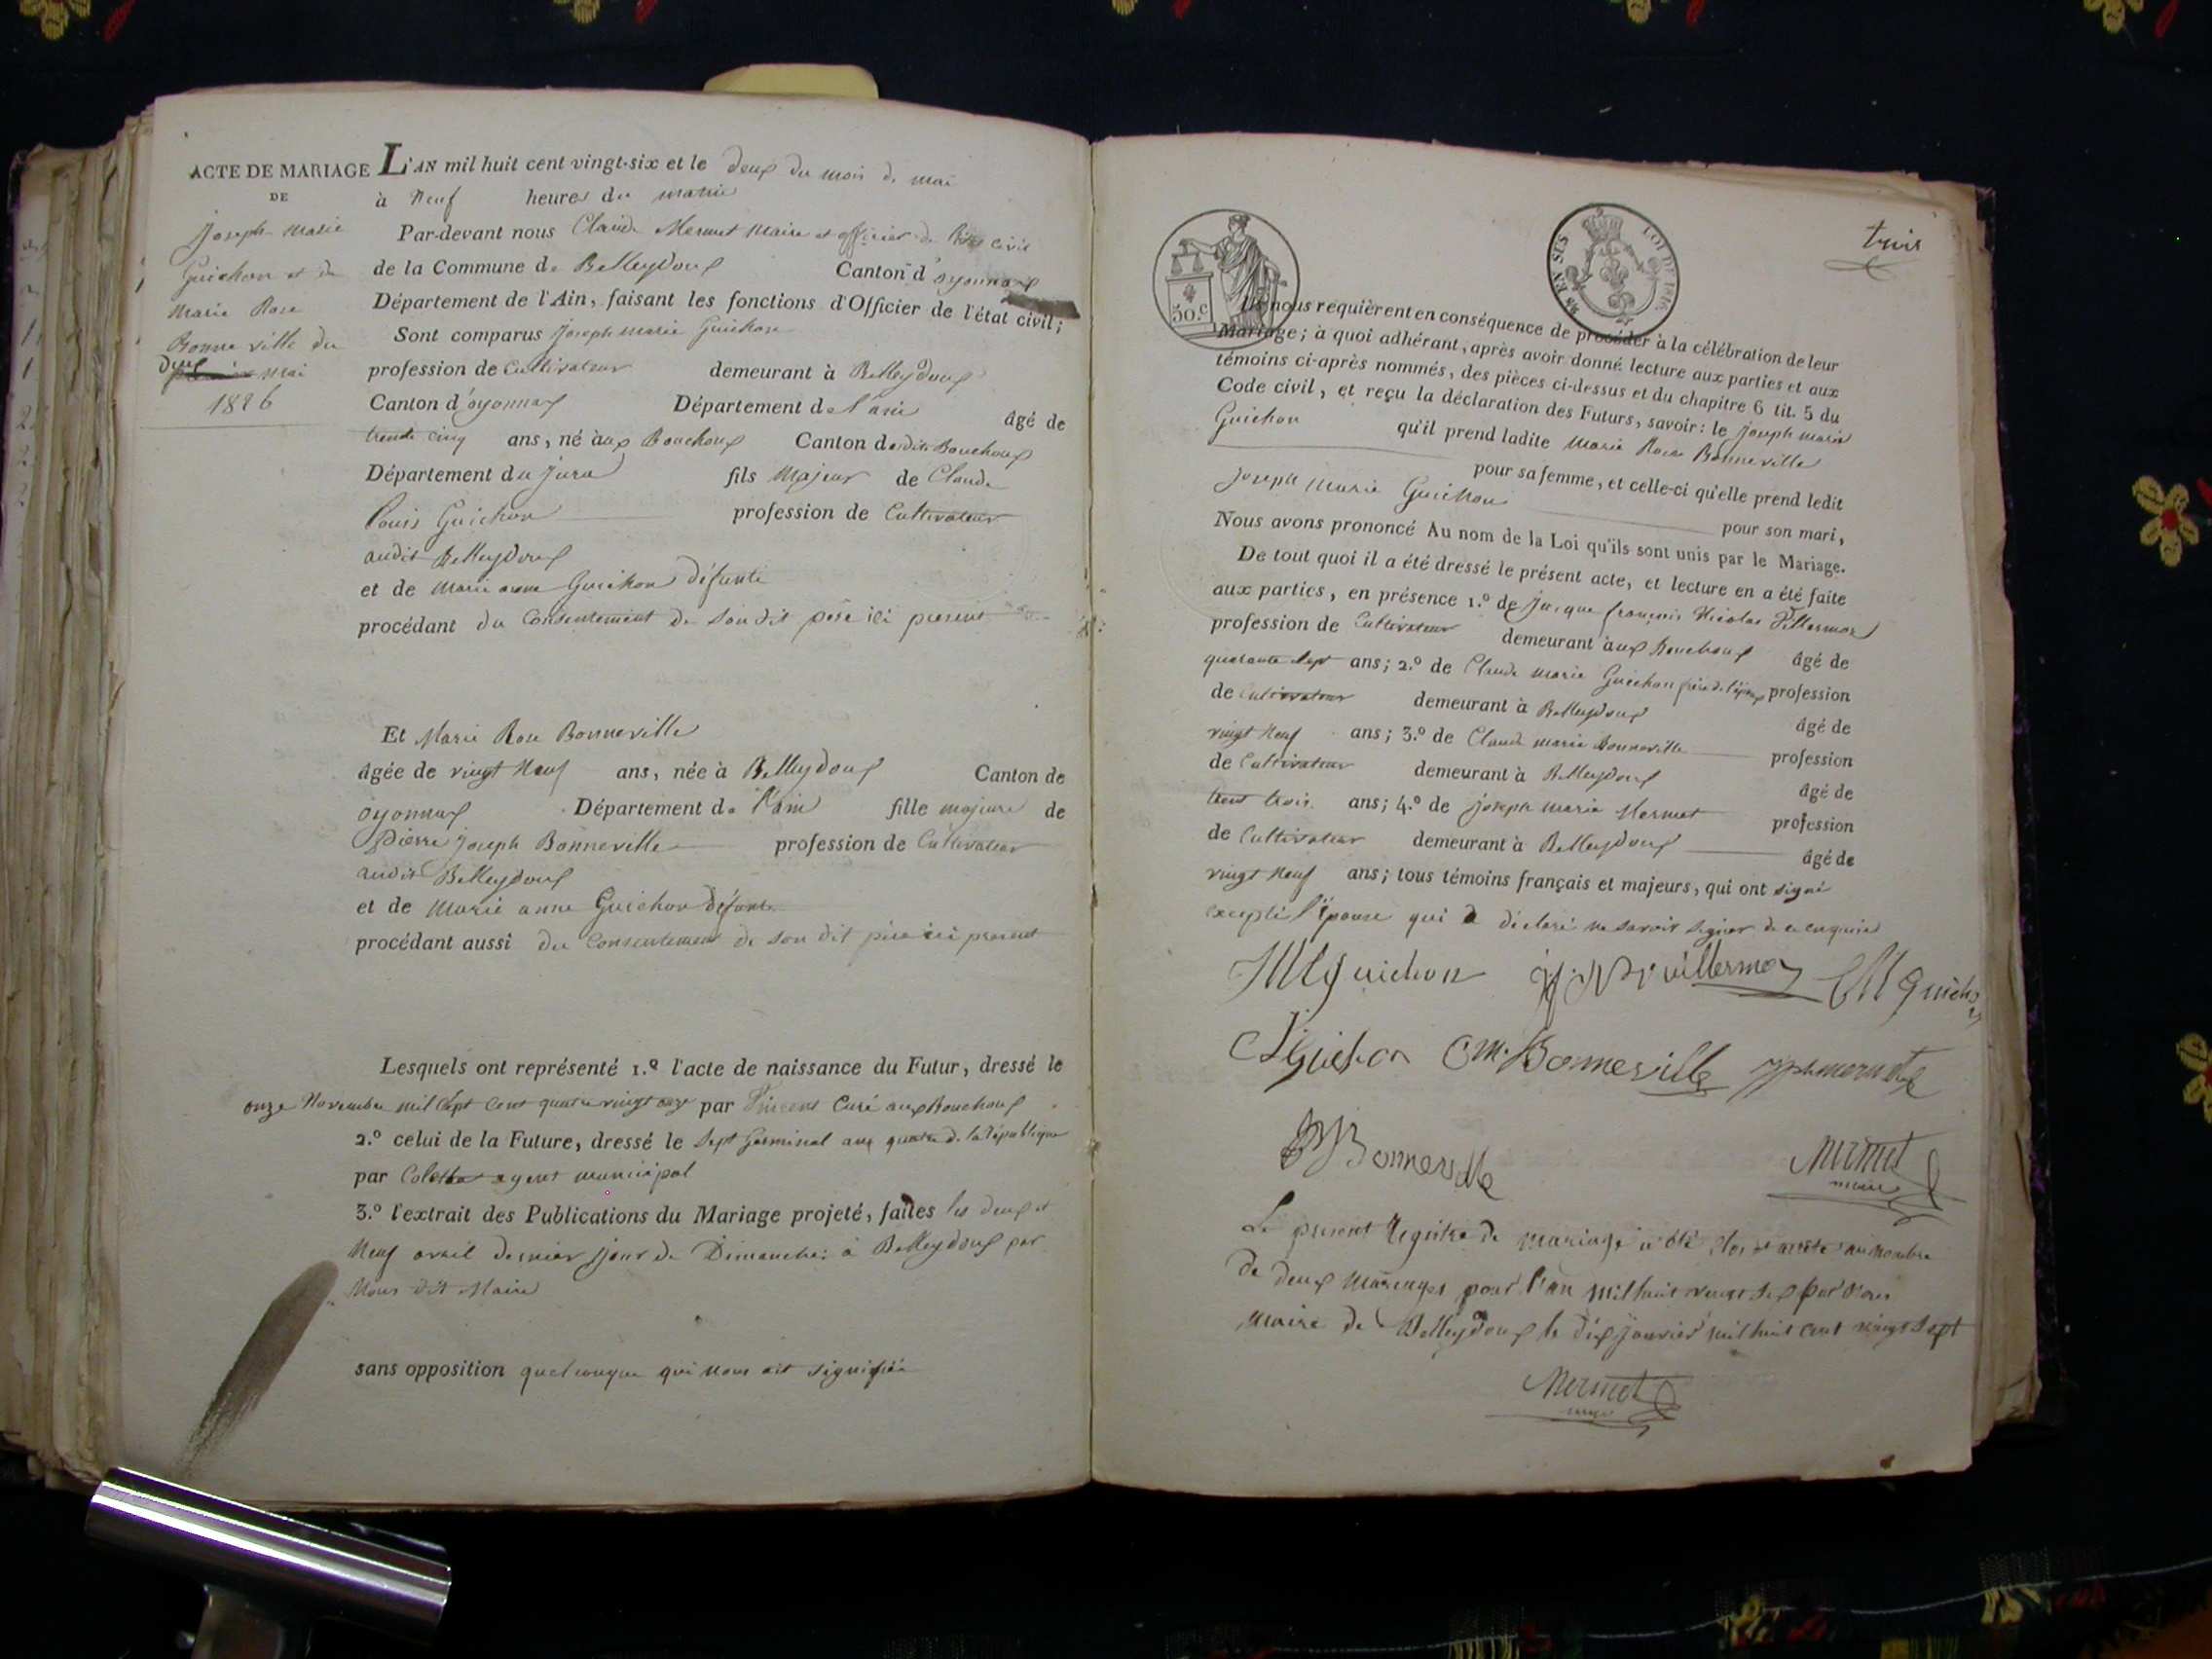 ACTE DE MARIAGE
DE
Joseph Marie
Guichon et de
Marie Rose
Bonneville du
deux mai
1826
L'AN mil huit cent vingt-six et le deux du mois de mai
à neuf heures du matin
Par-devant nous Claude Mermet Maire et officier de l'état civil
de la Commune de Belleydoux Canton d'oyonnax
Département de l'Ain, faisant les fonctions d'Officier de l'état civil;
Sont comparus joseph marie Guichon
profession de Cultivateur demeurant à Belleydoux
Canton d'oyonnax Département de l'ain âgé de
trente cinq ans, né aux Bouchoux Canton desdits Bouchoux
Département du jura fils Majeur de Claude
Louis Guichon profession de Cultivateur
audit Belleydoux
et de marie anne Guichon défunte
procédant du Consentement de son dit père ici présent
Et Marie Rose Bonneville
âgée de vingt Neuf ans, née à Belleydoux Canton de
oyonnax Département de l'ain fille majeure de
Pierre joseph Bonneville profession de Cultivateur
audit Belleydoux
et de Marie anne Guichon défunte
procédant aussi du Consentement de son dit père ici présent
Lesquels ont représenté 1.º l'acte de naissance du Futur, dressé le
onze Novembre mil sept cent quatre vingt onze par Vincent Curé aux Bouchoux
2.º celui de la Future, dressé le sept Germinal an quatre de la république
par agent municipal
3.º l'extrait des Publications du Mariage projeté, faites les deux et
Neuf avril dernier jour de Dimanche à Belleydoux par
Nous dit Maire
sans opposition quelconque qui nous ait signifiée
trois
30.c
LOI DE 1816
Ils nous requièrent en conséquence de procéder à la célébration de leur
Mariage; à quoi adhérant, après avoir donné lecture aux parties et aux
témoins ci-après nommés, des pièces ci-dessus et du chapitre 6 tit. 5 du
Code civil, et reçu la déclaration des Futurs, savoir: le joseph marie
Guichon qu'il prend ladite Marie Rose Bonneville
pour sa femme, et celle-ci qu'elle prend ledit
joseph marie Guichon pour son mari,
Nous avons prononcé Au nom de la Loi qu'ils sont unis par le Mariage.
De tout quoi il a été dressé le présent acte, et lecture en a été faite
aux parties, en présence 1.º de jacque françois Nicolas Villermoz
profession de Cultivateur demeurant aux Bouchoux âgé de
quarante sept ans; 2.º de Claude marie Guichon frère de l'époux profession
de Cultivateur demeurant à Belleydoux âgé de
vingt neuf ans; 3.º de Claude marie Bonneville profession
de Cultivateur demeurant à Belleydoux âgé de
trente trois ans; 4.º de joseph marie Mermet profession
de Cultivateur demeurant à Belleydoux âgé de
vingt neuf ans; tous témoins français et majeurs, qui ont signé
excepté l'épouse qui a déclaré ne savoir signer de ce enquise
JM guichon Villermoz CM guichon
CLGuichon CM. Bonneville jph mermet
PJ Bonneville Mermet
maire
Le present Registre de mariage a été clos et arrêté au nombre
de deux mariages pour l'an mil huit vingt six par nous
maire de Belleydoux le dix janvier mil huit cent vingt sept
Mermet
maire